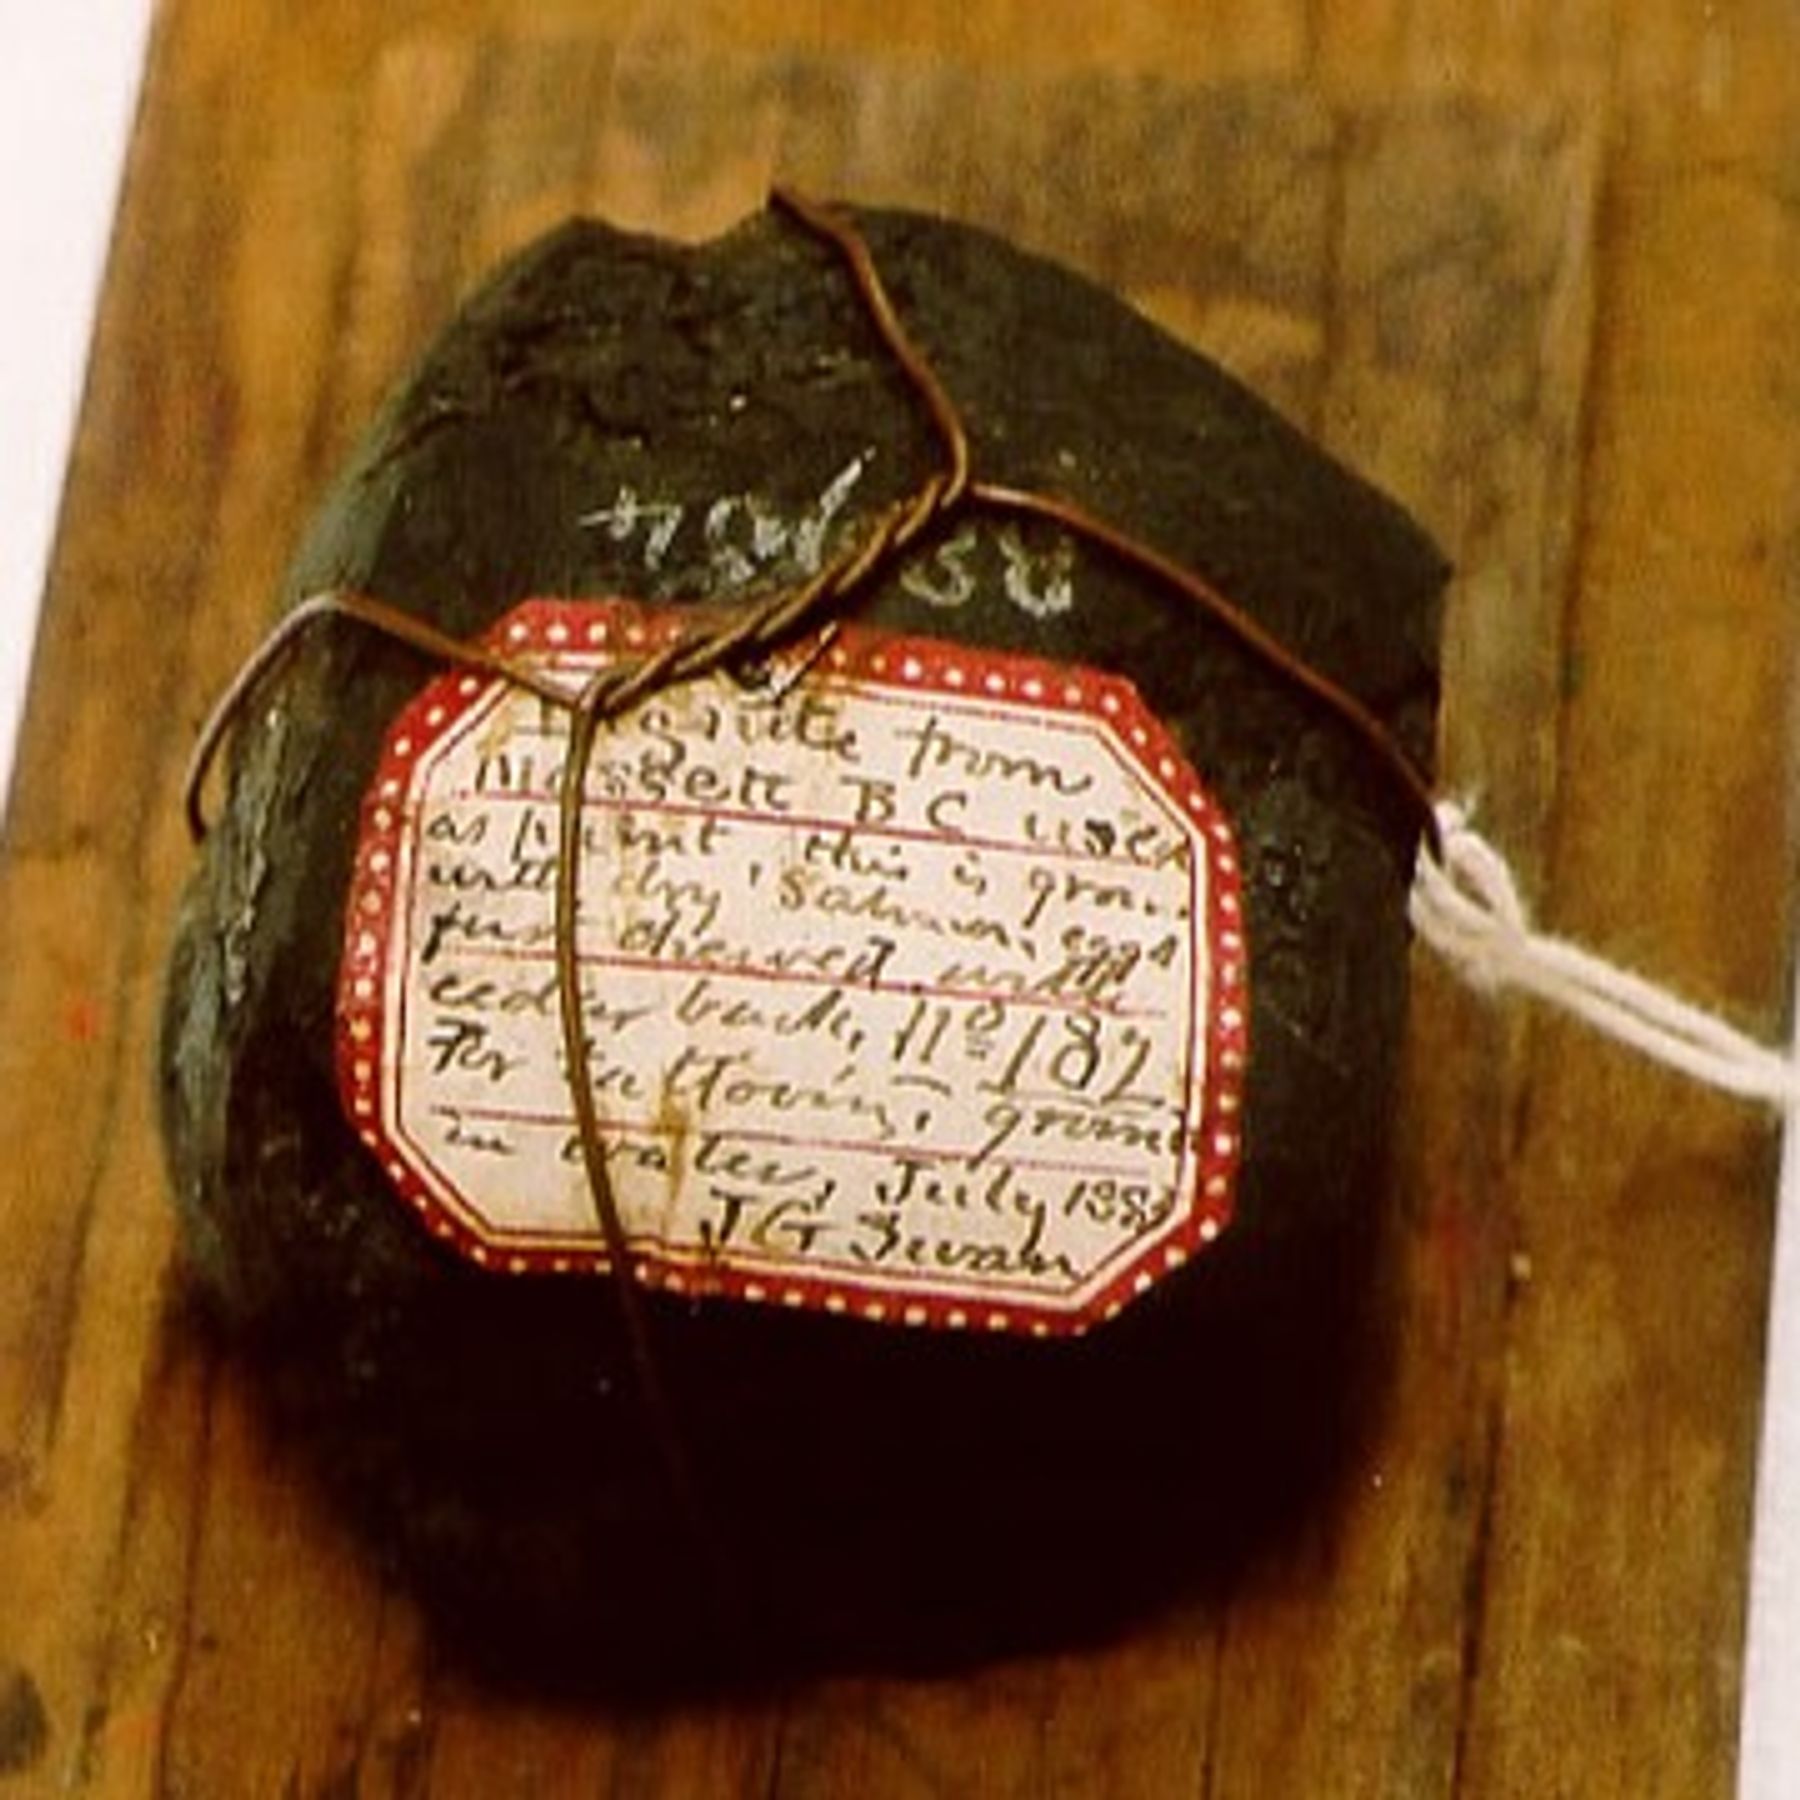 Lignite from
Massett B C used
as paint this is groun
with dry salmon eggs
first chewed with
cedar bark, No 182
For tattooing ground
in water, July 1883
J G Swan